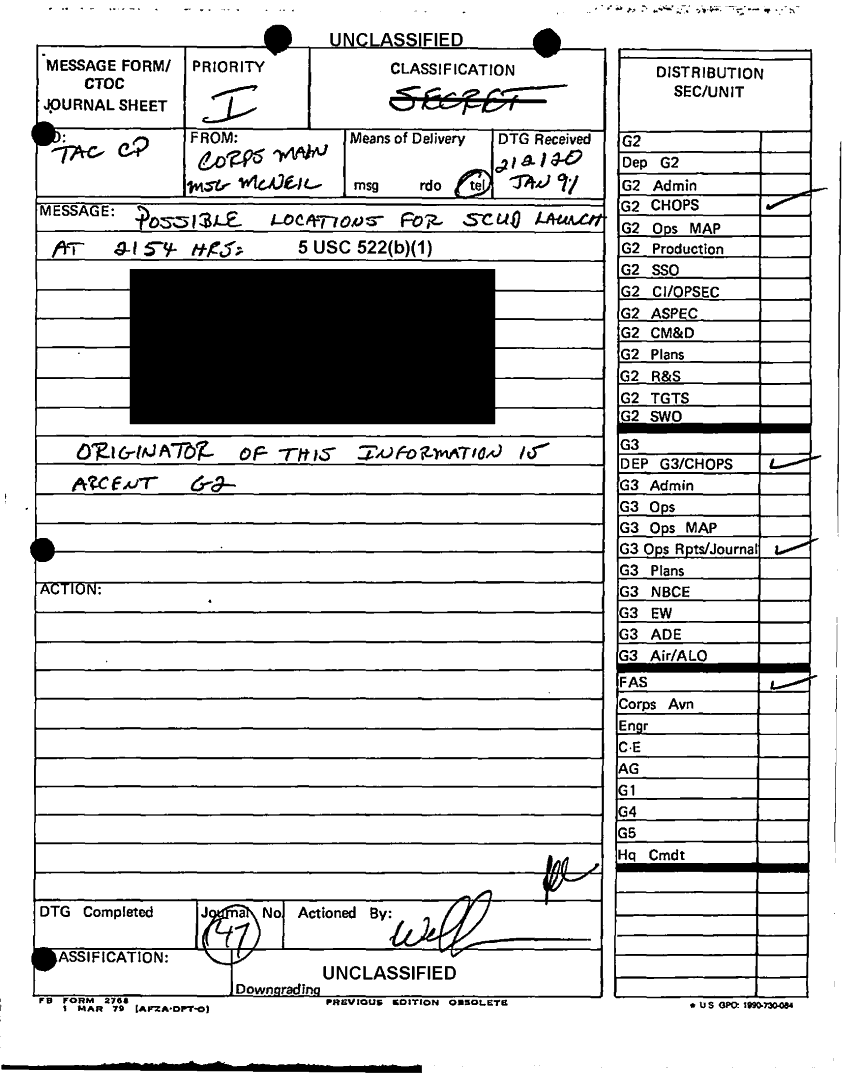 UNCLASSIFIED
MESSAGE FORM/
CTOC
JOURNAL SHEET
PRIORITY
I
CLASSIFICATION
SECRET
O:
TAC CP
FROM:
CORPS MAIN
MSG MCNEIL
Means of Delivery
msg rdo tel
DTG Received
212120
JAN 91
MESSAGE: POSSIBLE LOCATIONS FOR SCUD LAUNCH
AT 2154 HRS: 5 USC 522(b)(1)
ORIGINATOR OF THIS INFORMATION IS
ARCENT G2
ACTION:
DTG Completed
Journal No.
47
Actioned By:
ASSIFICATION:
UNCLASSIFIED
Downgrading
FB FORM 2768
1 MAR 79 (AFZA-DPT-O)
PREVIOUS EDITION OBSOLETE
DISTRIBUTION
SEC/UNIT
G2
Dep G2
G2 Admin
G2 CHOPS
G2 Ops MAP
G2 Production
G2 SSO
G2 CI/OPSEC
G2 ASPEC
G2 CM&D
G2 Plans
G2 R&S
G2 TGTS
G2 SWO
G3
DEP G3/CHOPS
G3 Admin
G3 Ops
G3 Ops MAP
G3 Ops Rpts/Journal
G3 Plans
G3 NBCE
G3 EW
G3 ADE
G3 Air/ALO
FAS
Corps Avn
Engr
C-E
AG
G1
G4
G5
Hq Cmdt
* U S GPO: 1990-730-084